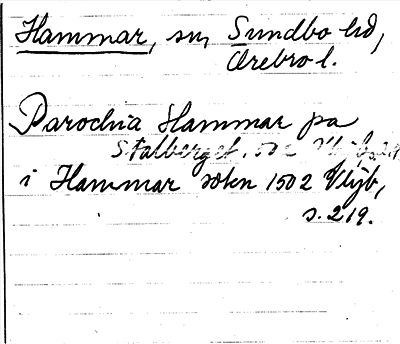 Hammar, sn, Sundbo hd,
Örebro l.
Parochia Hammar pa
Stalberget. 1502
i Hammar soken 1502 Vtjb,
s. 219.